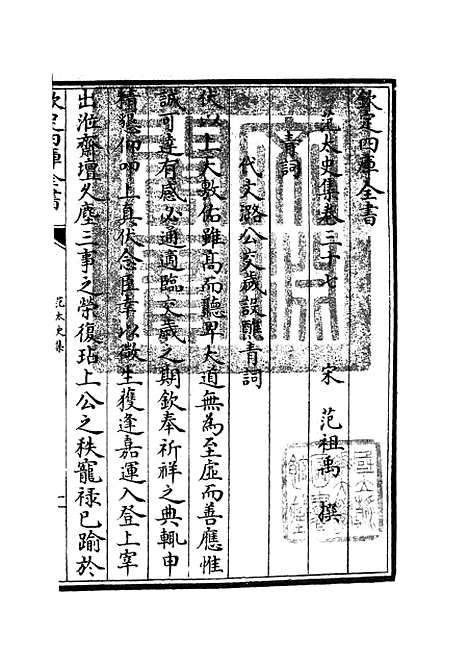 欽定四庫全書
范太史集卷三十七
宋 范祖禹 撰
青詞
代文潞公交歲設醮青詞
伏以上天敷佑雖高而聽卑大道無為至虛而善應惟
誠可達有感必通適臨交歲之期欽奉祈祥之典輒申
精懇仰叩上真伏念臣幸以微生獲逢嘉運入登上宰
出涖齋壇久塵三事之榮復玷上公之秩寵祿已踰於
欽定四庫全書
范太史集
一